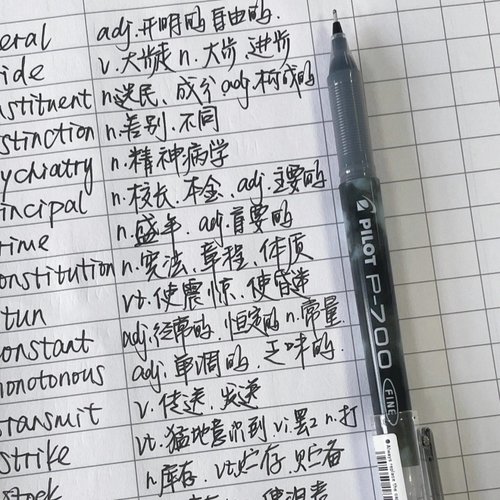 eral adj.开明的 自由的.
ide v.大步走 n.大步、进步
nstituent n.选民、成分 adj.构成的
stinction n.差别、不同
ychiatry n.精神病学
incipal n.校长、本金、adj.主要的
rime n.盛年、adj.首要的
onstitution n.宪法、章程、体质
tun vt.使震惊、使昏
onstant adj.经常的、恒定的 n.常量.
monotonous adj.单调的、乏味的.
transmit v.传送、发送
strike vt.猛地意识到 vi.罢工 n.打
n.库存、vt.贮存、贮备
PILOT P-700 FINE